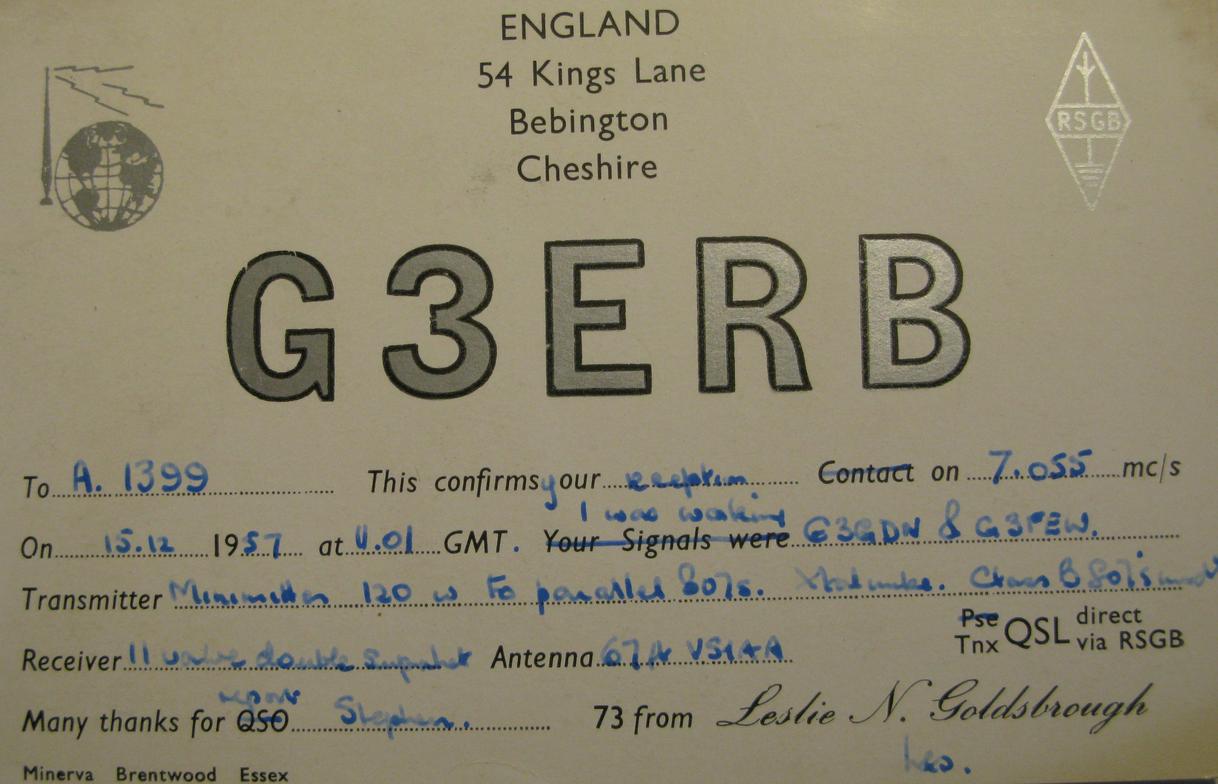 ENGLAND
54 Kings Lane
Bebington
Cheshire
RSGB
G3ERB
To A. 1399 This confirms your reception Contact on 7.055 mc/s
I was working
On 15.12 1957 at 11.01 GMT. Your Signals were G3GDN & G3FEW.
Transmitter Minimitter 120 w to parallel 807s. Class B 807s mod
Pse Tnx QSL direct via RSGB
Receiver 11 valve double superhet Antenna 67ft VS1AA
report
Many thanks for QSO Stephen. 73 from Leslie N. Goldsbrough
Les.
Minerva Brentwood Essex